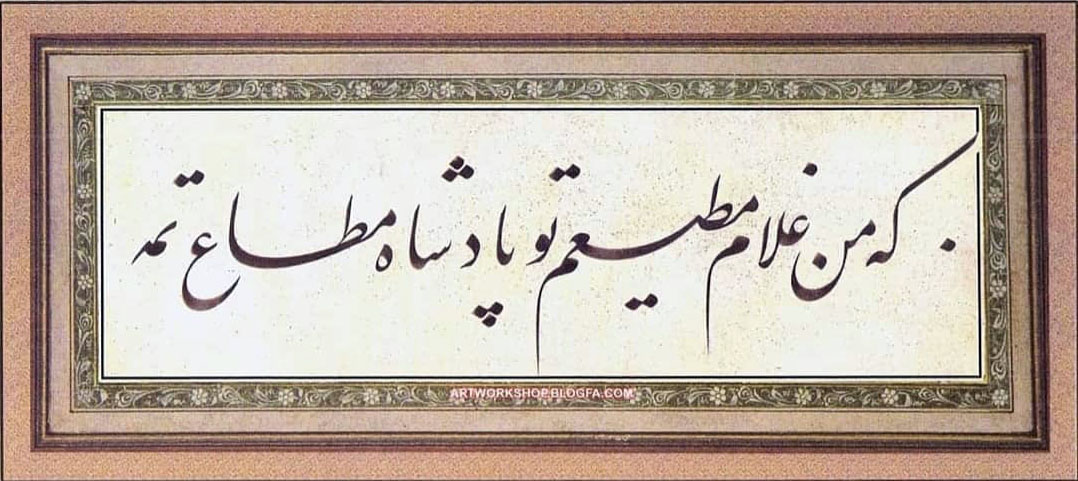 که من غلام مطیعم تو پادشاه مطاع تمه
ARTWORKSHOP.BLOGFA.COM